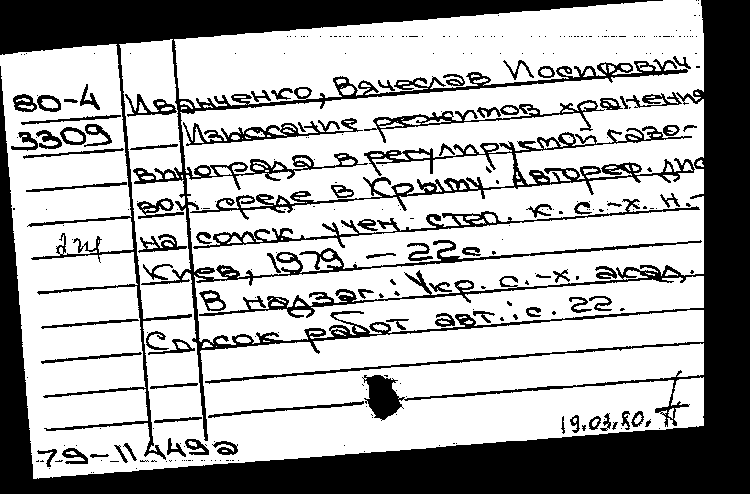 80-4
3309
Иванченко, Вячеслав Иосифович.
Изыскание режимов хранения
винограда в регулируемой газо-
вой среде в Крыму. Автореф. дис
на соиск. учен. степ. к. с.-х. н.-
Киев, 1979. - 22с.
В надзаг.: Укр. с.-х. акад.
Список работ авт.: с. 22.
19.03.80.
79-11449а